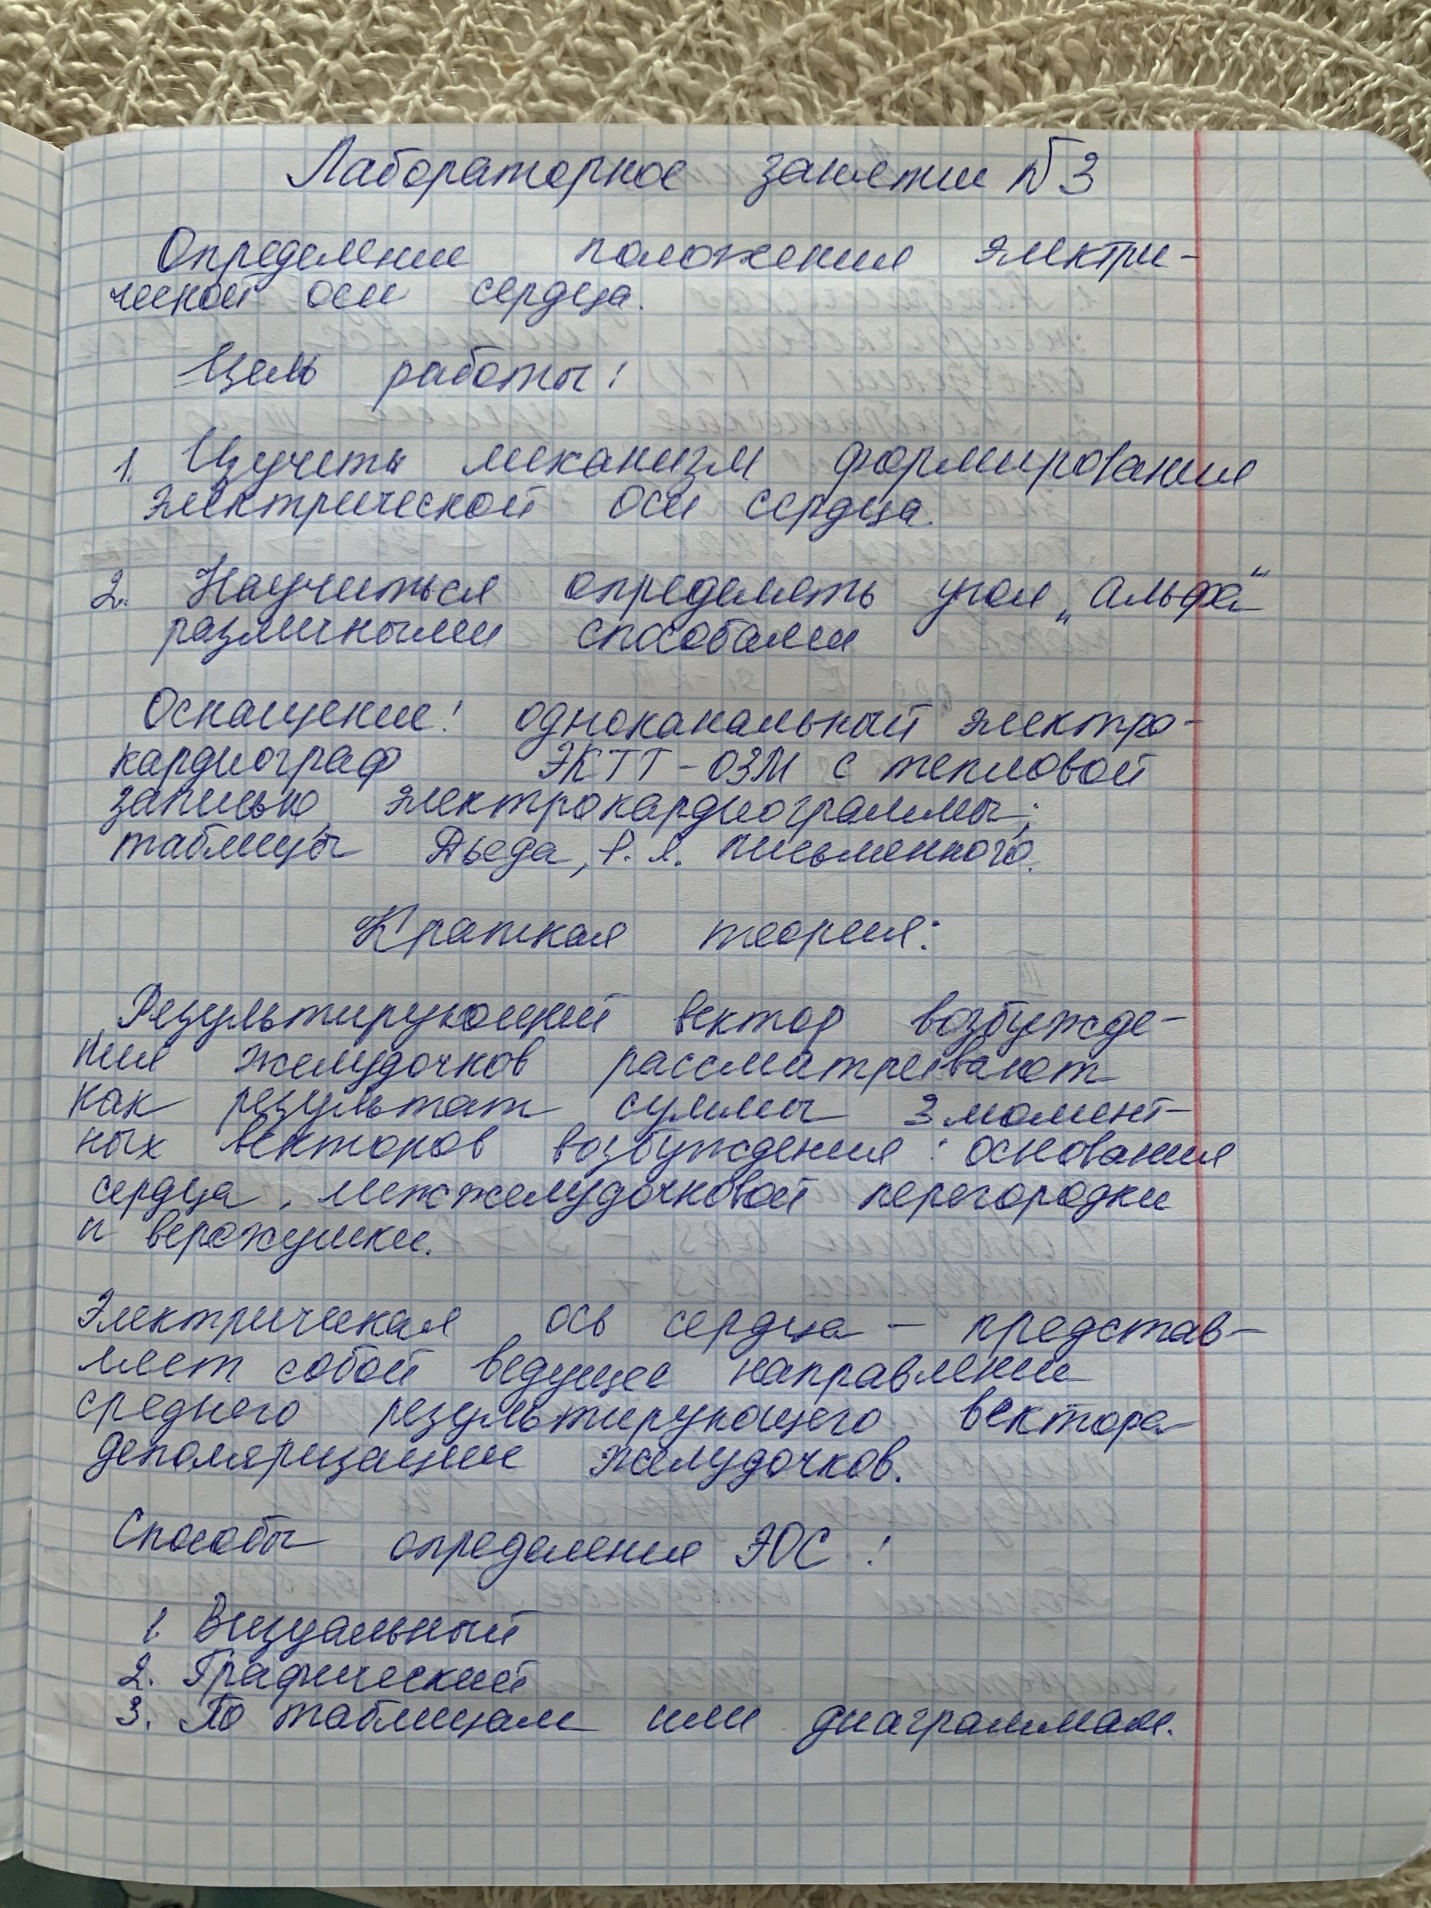 Лабораторное занятии №3
Определение положения электри-
ческой оси сердца.
Цель работы:
1. Изучить механизм формирования
электрической оси сердца.
2. Научиться определять угол „альфа“
различными способами
Оснащение: одноканальный электро-
кардиограф ЭКТТ-03М с тепловой
записью электрокардиограммы;
таблицы Дьеда, Р. Я. Письменного.
Краткая теория:
Результирующий вектор возбужде-
ния желудочков рассматривают
как результат суммы 3 момент-
ных векторов возбуждения: основания
сердца, межжелудочковой перегородки
и верхушки.
Электрическая ось сердца – представ-
ляет собой ведущее направление
среднего результирующего вектора
деполяризации желудочков.
Способы определения ЭОС:
1. Визуальный
2. Графический
3. По таблицам или диаграммам.